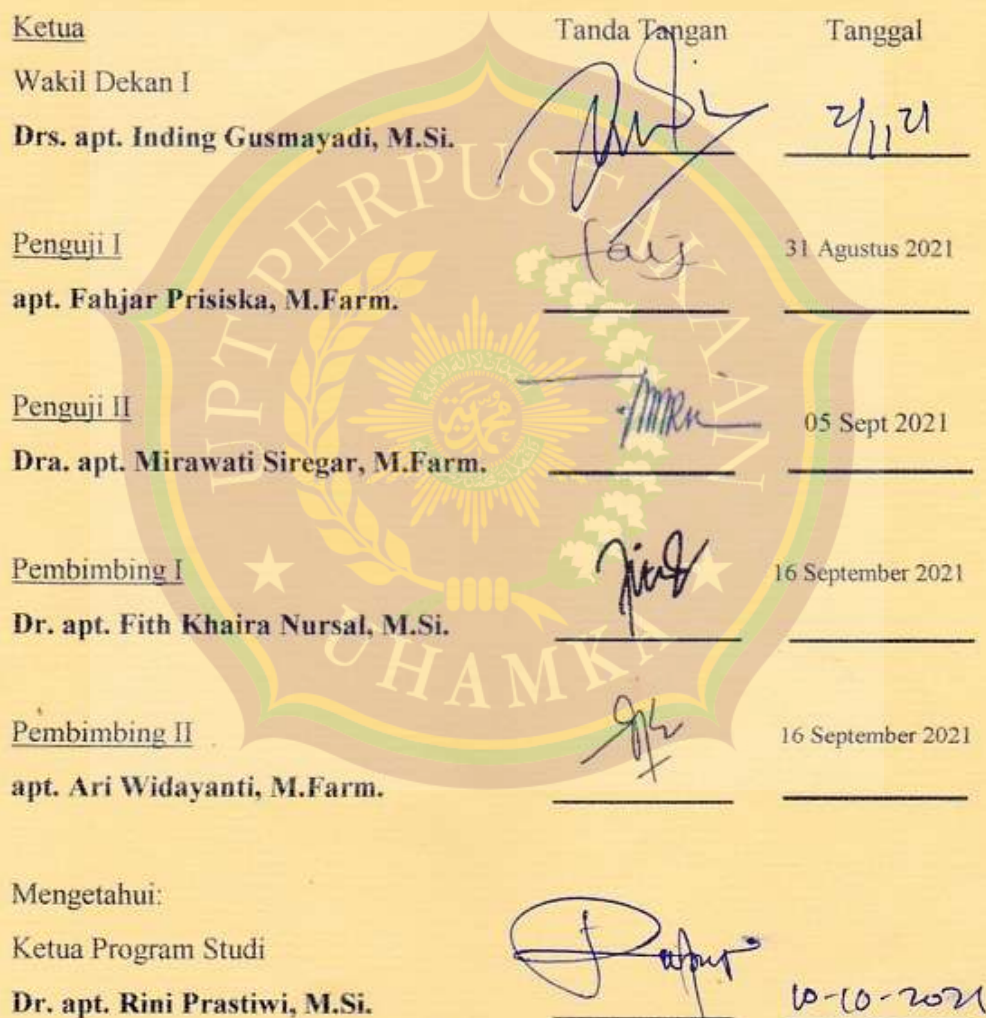 Ketua Tanda Tangan Tanggal
Wakil Dekan I
Drs. apt. Inding Gusmayadi, M.Si. 2/11 21
Penguji I 31 Agustus 2021
apt. Fahjar Prisiska, M.Farm.
Penguji II 05 Sept 2021
Dra. apt. Mirawati Siregar, M.Farm.
Pembimbing I 16 September 2021
Dr. apt. Fith Khaira Nursal, M.Si.
Pembimbing II 16 September 2021
apt. Ari Widayanti, M.Farm.
Mengetahui:
Ketua Program Studi
Dr. apt. Rini Prastiwi, M.Si. 10-10-2021
UPT PERPUSTAKAAN
UHAMKA